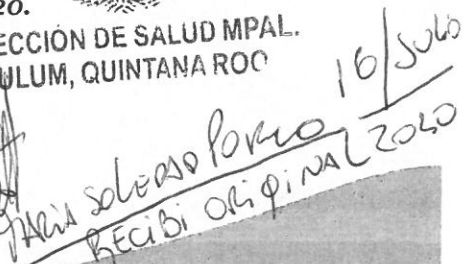 20.
ECCIÓN DE SALUD MPAL.
ULUM, QUINTANA ROO
16/JULIO
MARIA SOLEDAD 2020
RECIBI ORIGINAL